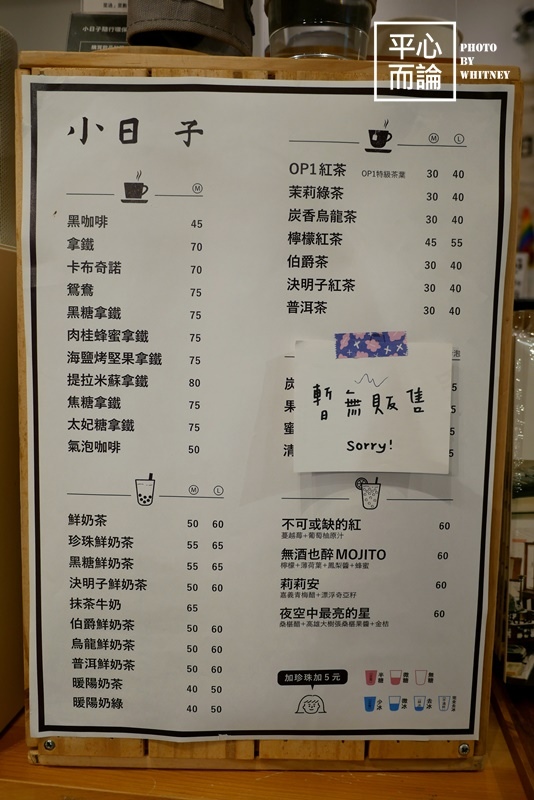 平心
而論
PHOTO
BY
WHITNEY
小日子
M
黑咖啡 45
拿鐵 70
卡布奇諾 70
鴛鴦 75
黑糖拿鐵 75
肉桂蜂蜜拿鐵 75
海鹽烤堅果拿鐵 75
提拉米蘇拿鐵 80
焦糖拿鐵 75
太妃糖拿鐵 75
氣泡咖啡 50
M L
鮮奶茶 50 60
珍珠鮮奶茶 55 65
黑糖鮮奶茶 55 65
決明子鮮奶茶 50 60
抹茶牛奶 65
伯爵鮮奶茶 50 60
烏龍鮮奶茶 50 60
普洱鮮奶茶 50 60
暖陽奶茶 40 50
暖陽奶綠 40 50
M L
OP1紅茶 OP1特級茶葉 30 40
茉莉綠茶 30 40
炭香烏龍茶 30 40
檸檬紅茶 45 55
伯爵茶 30 40
決明子紅茶 30 40
普洱茶 30 40
泡
炭 5
果 5
蜜 5
清 5
暫無販售
Sorry!
不可或缺的紅 60
蔓越莓+葡萄柚原汁
無酒也醉MOJITO 60
檸檬+薄荷葉+鳳梨醬+蜂蜜
莉莉安 60
嘉義青梅醋+漂浮奇亞籽
夜空中最亮的星 60
桑椹醋+高雄大樹張桑椹果醬+金桔
加珍珠加5元
半糖 微糖 無糖
少冰 微冰 去冰